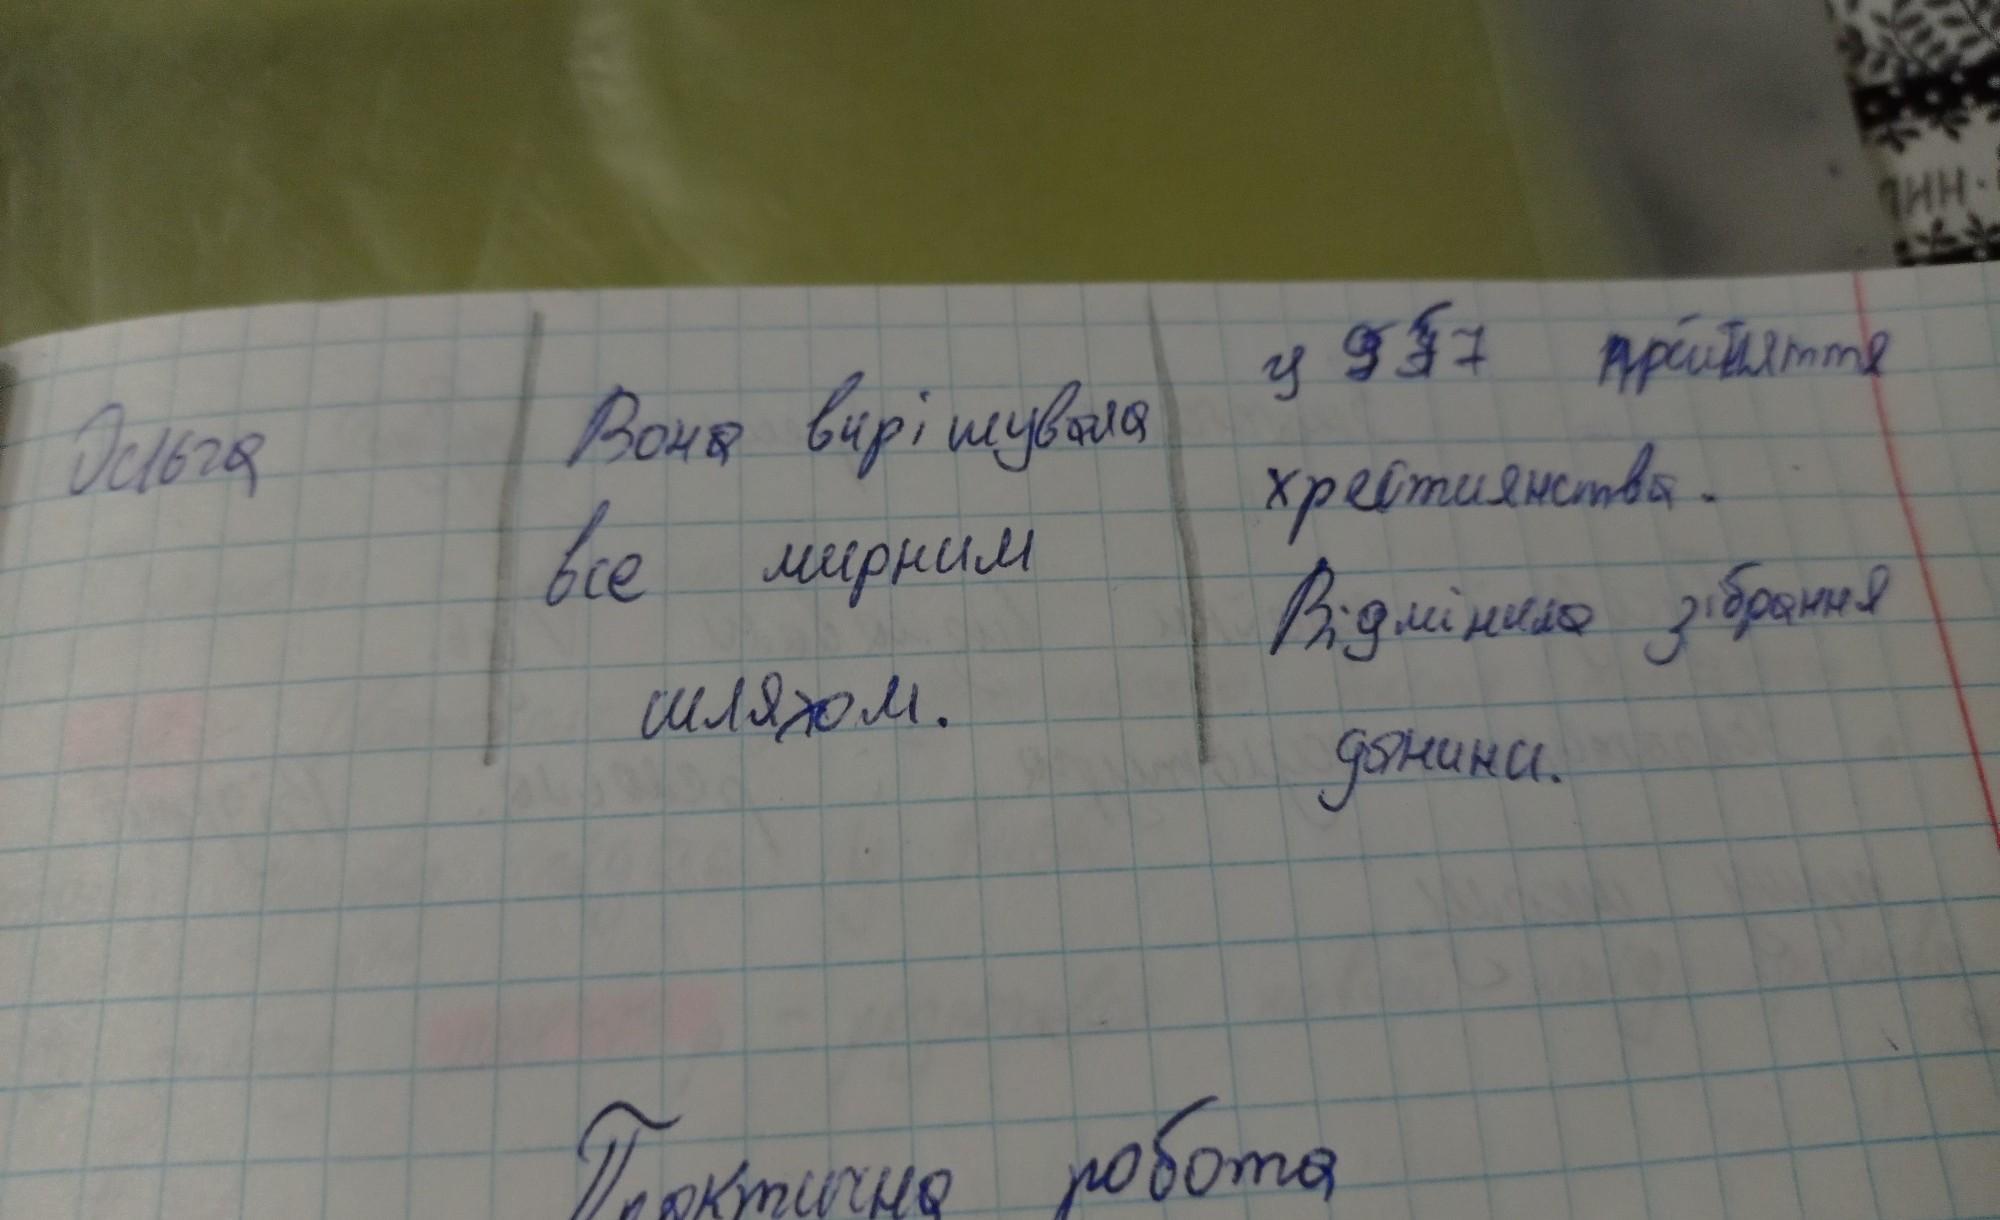 Ольга
Вона вирішувала
все мирним
шляхом.
у 957 прийняття
християнства.
Відмінила зібрання
данини.
Практична робота